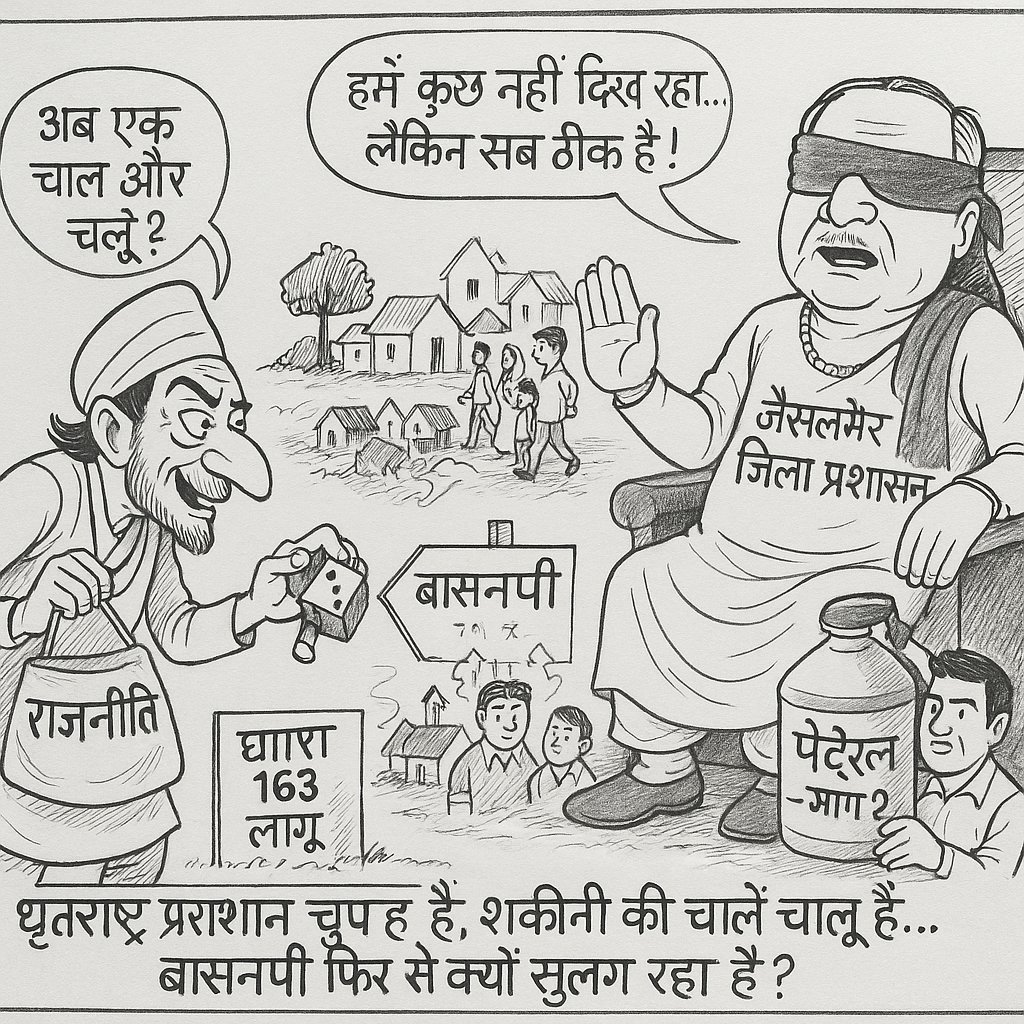 अब एक
चाल और
चलूं?
हमें कुछ नहीं दिख रहा...
लेकिन सब ठीक है!
जैसलमेर
जिला प्रशासन
बासनपी
राजनीति
घाारा
163
लागू
पेट्रेल
धृतराष्ट्र प्रराशान चुप ह हैं, शकीनी की चालें चालू हैं...
बासनपी फिर से क्यों सुलग रहा है?